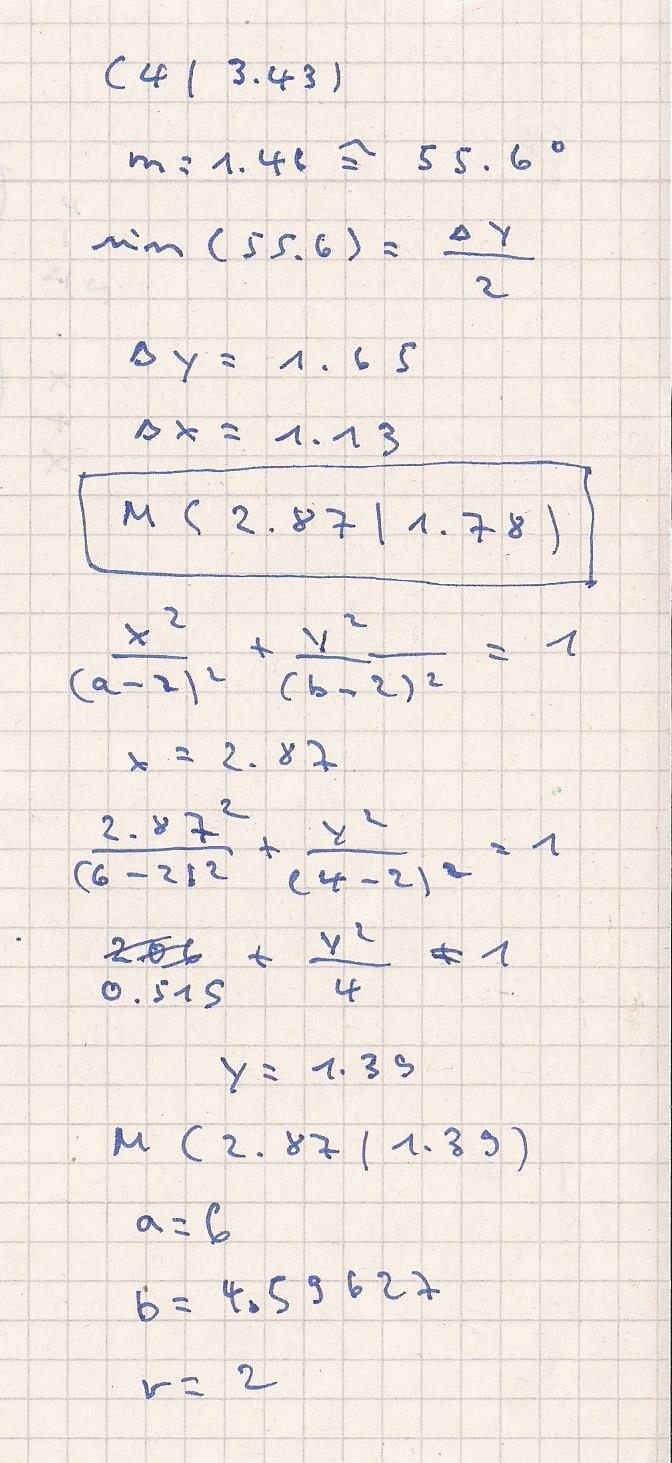 (4 | 3.43)
m = 1.46 ≙ 55.6°
sin (55.6) = ΔY / 2
ΔY = 1.65
ΔX = 1.13
M (2.87 | 1.78)
x² / (a-2)² + y² / (b-2)² = 1
x = 2.87
2.87² / (6-2)² + y² / (4-2)² = 1
0.515 + y² / 4 = 1
y = 1.39
M (2.87 | 1.39)
a = 6
b = 4.59627
r = 2